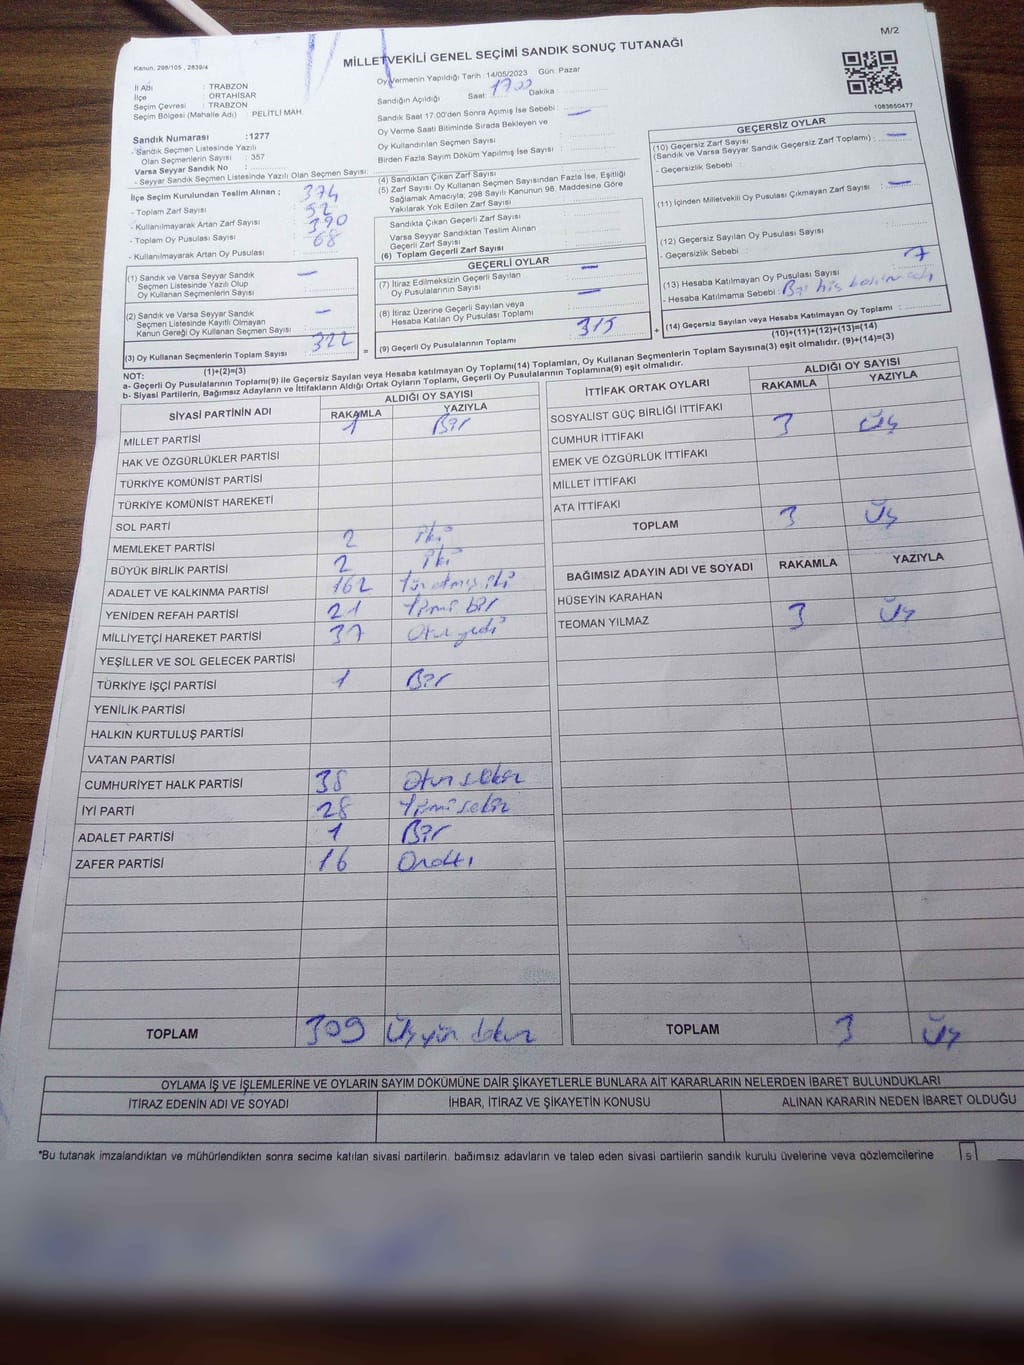 M/2
MİLLETVEKİLİ GENEL SEÇİMİ SANDIK SONUÇ TUTANAĞI
Kanun, 298/105 , 2839/4
İl Adı : TRABZON
İlçe : ORTAHİSAR
Seçim Çevresi : TRABZON
Seçim Bölgesi (Mahalle Adı) : PELİTLİ MAH.
Sandık Numarası :1277
- Sandık Seçmen Listesinde Yazılı
Olan Seçmenlerin Sayısı : 357
Varsa Seyyar Sandık No :
- Seyyar Sandık Seçmen Listesinde Yazılı Olan Seçmen Sayısı:
İlçe Seçim Kurulundan Teslim Alınan ; 374
- Toplam Zarf Sayısı 52
- Kullanılmayarak Artan Zarf Sayısı 390
- Toplam Oy Pusulası Sayısı : 68
- Kullanılmayarak Artan Oy Pusulası :
(1) Sandık ve Varsa Seyyar Sandık —
Seçmen Listesinde Yazılı Olup
Oy Kullanan Seçmenlerin Sayısı
(2) Sandık ve Varsa Seyyar Sandık —
Seçmen Listesinde Kayıtlı Olmayan
Kanun Gereği Oy Kullanan Seçmen Sayısı :
(3) Oy Kullanan Seçmenlerin Toplam Sayısı 322
(1)+(2)=(3)
Oy Vermenin Yapıldığı Tarih :14/05/2023 Gün: Pazar
Sandığın Açıldığı Saat: 17 00 Dakika :
Sandık Saat 17:00'den Sonra Açımış İse Sebebi :
Oy Verme Saati Bitiminde Sırada Bekleyen ve —
Oy Kullandırılan Seçmen Sayısı
Birden Fazla Sayım Döküm Yapılmış İse Sayısı :
(4) Sandıktan Çıkan Zarf Sayısı
(5) Zarf Sayısı Oy Kullanan Seçmen Sayısından Fazla İse, Eşitliği
Sağlamak Amacıyla; 298 Sayılı Kanunun 98. Maddesine Göre
Yakılarak Yok Edilen Zarf Sayısı
Sandıkta Çıkan Geçerli Zarf Sayısı
Varsa Seyyar Sandıktan Teslim Alınan
Geçerli Zarf Sayısı
(6) Toplam Geçerli Zarf Sayısı
GEÇERLİ OYLAR
(7) İtiraz Edilmeksizin Geçerli Sayılan —
Oy Pusulalarının Sayısı
(8) İtiraz Üzerine Geçerli Sayılan veya —
Hesaba Katılan Oy Pusulası Toplamı
= (9) Geçerli Oy Pusulalarının Toplamı : 315 +
1083650477
GEÇERSİZ OYLAR
(10) Geçersiz Zarf Sayısı
(Sandık ve Varsa Seyyar Sandık Geçersiz Zarf Toplamı) : —
- Geçersizlik Sebebi :
(11) İçinden Milletvekili Oy Pusulası Çıkmayan Zarf Sayısı : —
(12) Geçersiz Sayılan Oy Pusulası Sayısı :
- Geçersizlik Sebebi :
(13) Hesaba Katılmayan Oy Pusulası Sayısı 7
- Hesaba Katılmama Sebebi :
(14) Geçersiz Sayılan veya Hesaba Katılmayan Oy Toplamı :
(10)+(11)+(12)+(13)=(14)
NOT:
a- Geçerli Oy Pusulalarının Toplamı(9) ile Geçersiz Sayılan veya Hesaba katılmayan Oy Toplamı(14) Toplamları, Oy Kullanan Seçmenlerin Toplam Sayısına(3) eşit olmalıdır. (9)+(14)=(3)
b- Siyasi Partilerin, Bağımsız Adayların ve İttifakların Aldığı Ortak Oyların Toplamı, Geçerli Oy Pusulalarının Toplamına(9) eşit olmalıdır.
SİYASİ PARTİNİN ADI ALDIĞI OY SAYISI
RAKAMLA YAZIYLA
MİLLET PARTİSİ 1 Bir
HAK VE ÖZGÜRLÜKLER PARTİSİ
TÜRKİYE KOMÜNİST PARTİSİ
TÜRKİYE KOMÜNİST HAREKETİ
SOL PARTİ
MEMLEKET PARTİSİ 2 İki
BÜYÜK BİRLİK PARTİSİ 2 İki
ADALET VE KALKINMA PARTİSİ 162
YENİDEN REFAH PARTİSİ 21 Yirmi bir
MİLLİYETÇİ HAREKET PARTİSİ 37 Otuz yedi
YEŞİLLER VE SOL GELECEK PARTİSİ
TÜRKİYE İŞÇİ PARTİSİ 1 Bir
YENİLİK PARTİSİ
HALKIN KURTULUŞ PARTİSİ
VATAN PARTİSİ
CUMHURİYET HALK PARTİSİ 38 Otuz sekiz
İYİ PARTİ 28 Yirmi sekiz
ADALET PARTİSİ 1 Bir
ZAFER PARTİSİ 16 Onaltı
TOPLAM 309 Üç yüz dokuz
İTTİFAK ORTAK OYLARI ALDIĞI OY SAYISI
RAKAMLA YAZIYLA
SOSYALİST GÜÇ BİRLİĞİ İTTİFAKI
CUMHUR İTTİFAKI 3 Üç
EMEK VE ÖZGÜRLÜK İTTİFAKI
MİLLET İTTİFAKI
ATA İTTİFAKI
TOPLAM 3 Üç
BAĞIMSIZ ADAYIN ADI VE SOYADI RAKAMLA YAZIYLA
HÜSEYİN KARAHAN
TEOMAN YILMAZ 3 Üç
TOPLAM 3 Üç
OYLAMA İŞ VE İŞLEMLERİNE VE OYLARIN SAYIM DÖKÜMÜNE DAİR ŞİKAYETLERLE BUNLARA AİT KARARLARIN NELERDEN İBARET BULUNDUKLARI
İTİRAZ EDENİN ADI VE SOYADI İHBAR, İTİRAZ VE ŞİKAYETİN KONUSU ALINAN KARARIN NEDEN İBARET OLDUĞU
*Bu tutanak imzalandıktan ve mühürlendikten sonra seçime katılan siyasi partilerin, bağımsız adayların ve talep eden siyasi partilerin sandık kurulu üyelerine veya gözlemcilerine 5